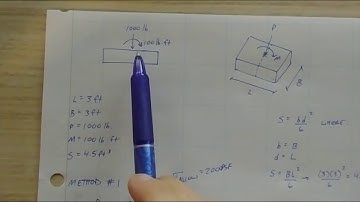 1000 lb
100 lb·ft
P
M
L
B
L = 3 ft
B = 3 ft
P = 1000 lb
M = 100 lb ft
S = 4.5 ft³
S = bd²/6
b = B
d = L
S = BL²/6 → (3)(3)²/6 = 4
METHOD #1
= 200 PSF